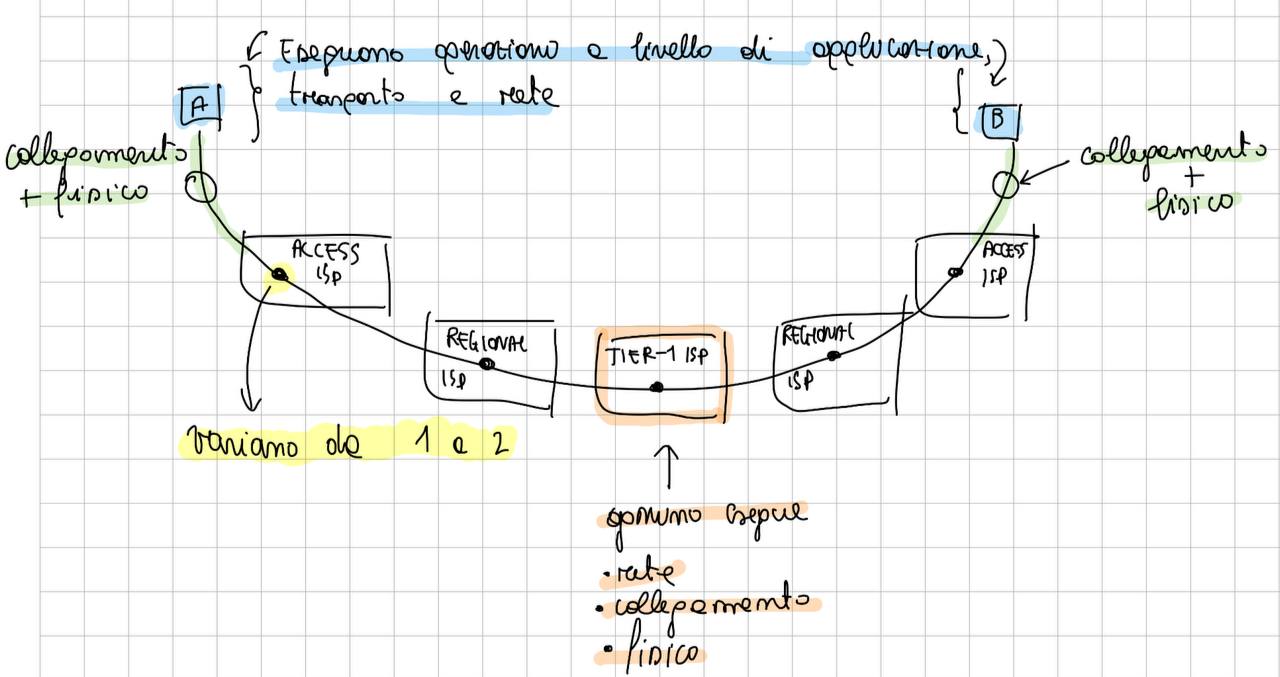 Eseguono operazioni a livello di applicazione,
trasporto e rete
A
B
collegamento
+ fisico
collegamento
+
fisico
ACCESS
ISP
ACCESS
ISP
REGIONAL
ISP
TIER-1 ISP
REGIONAL
ISP
Variano da 1 a 2
ognuno esegue
• rete
• collegamento
• fisico